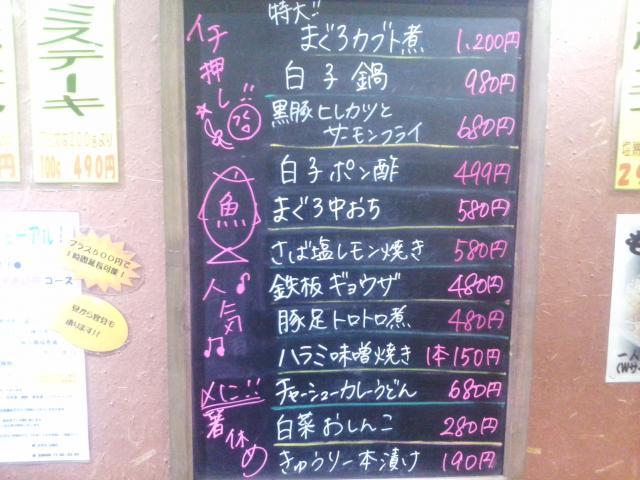 特大!!
まぐろカブト煮 1,200円
白子鍋 980円
黒豚ヒレカツと
サーモンフライ 680円
白子ポン酢 499円
まぐろ中おち 580円
さば塩レモン焼き 580円
鉄板ギョウザ 480円
豚足トロトロ煮 480円
ハラミ味噌焼き 1本150円
チャーシューカレーうどん 680円
白菜おしんこ 280円
きゅうり一本漬け 190円
イチ押し!!
魚
人気
〆に!!
箸休め
ミステーキ
100g 490円
ューアル!
コース
プラス500円で
1時間延長可能!
昼から宴会も
承ります!!